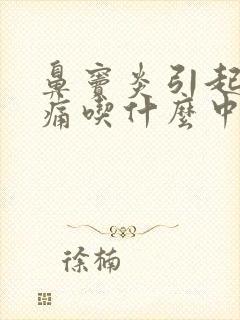 鼻窦炎引起
痛喫什麼中
徐楠